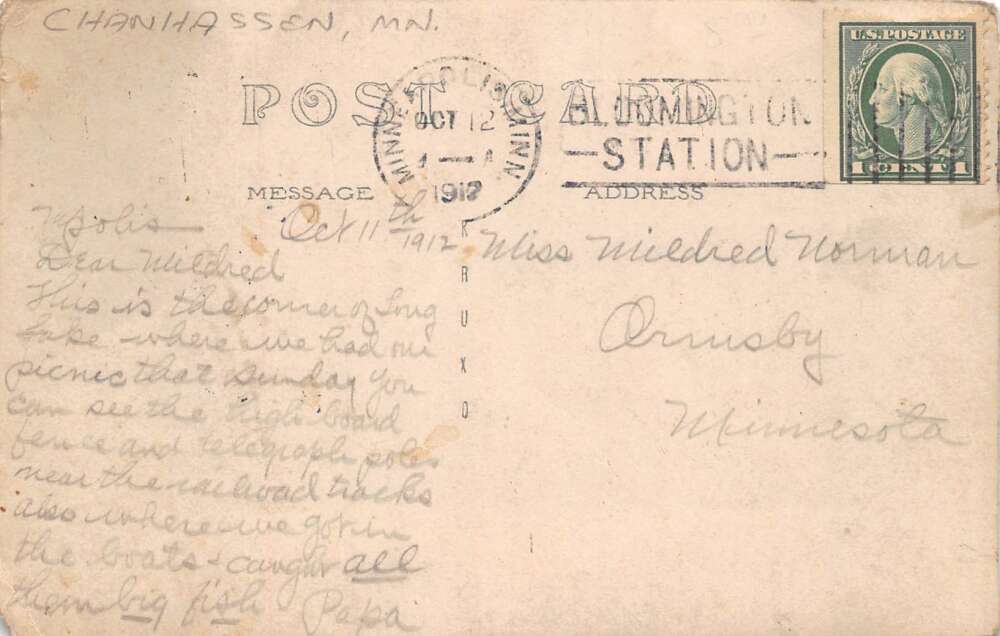 CHANHASSEN, MN.
U.S. POSTAGE
1 CENT 1
POST CARD
MINNEAPOLIS, MINN.
OCT 12
4 — A
1912
BLOOMINGTON
STATION
MESSAGE
ADDRESS
KRUXO
Mpolis Oct 11th 1912
Dear Mildred
This is the corner of Long
Lake where we had our
picnic that Sunday you
can see the high board
fence and telegraph poles
near the railroad tracks
also where we got in
the boats & caught all
them big fish Papa
Miss Mildred Norman
Ormsby
Minnesota